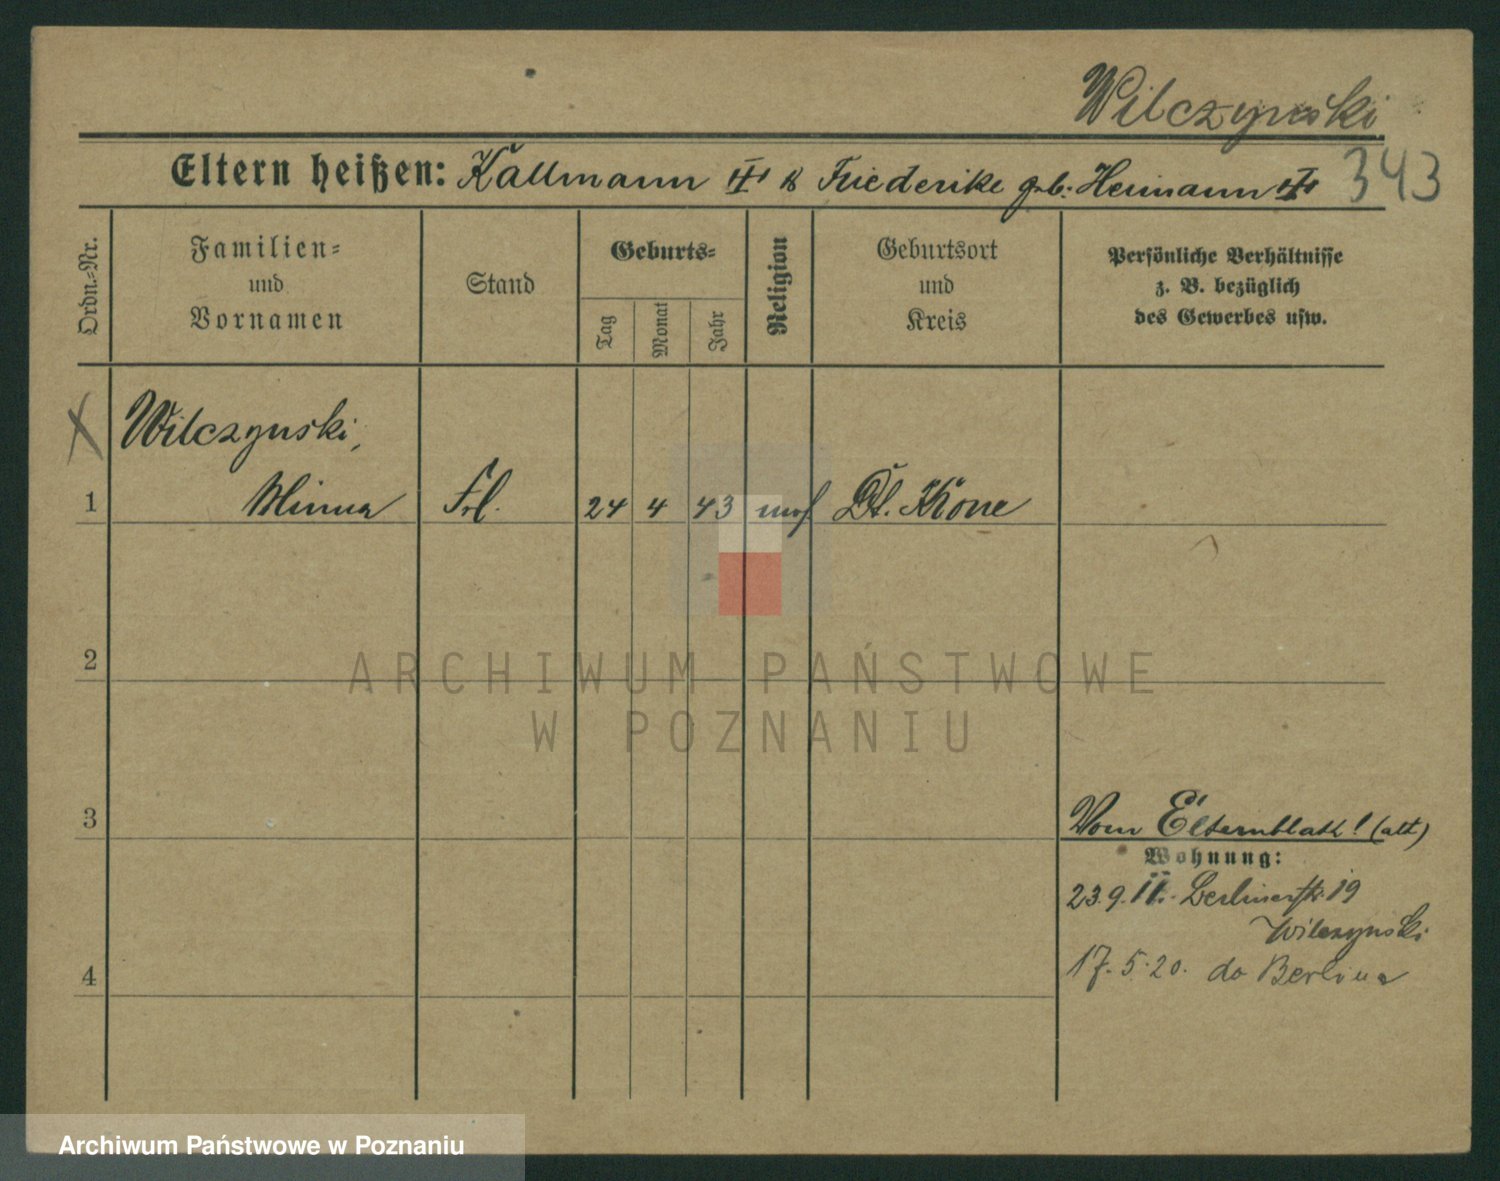 Wilczynski
Eltern heißen: Kallmann & Friederike geb. Hermann
343
Ordn.-Nr.
Familien- und Vornamen
Stand
Geburts-
Tag
Monat
Jahr
Religion
Geburtsort und Kreis
Persönliche Verhältnisse
z. B. bezüglich
des Gewerbes usw.
Wilczynski,
1 Minna Frl. 24 4 43 mos Dt. Krone
2
ARCHIWUM PAŃSTWOWE
W POZNANIU
3
Vom Elternblatt! (alt)
Wohnung:
23.9.11. Berlinerstr. 19
Wilczynski
4
17.5.20. do Berlina
Archiwum Państwowe w Poznaniu